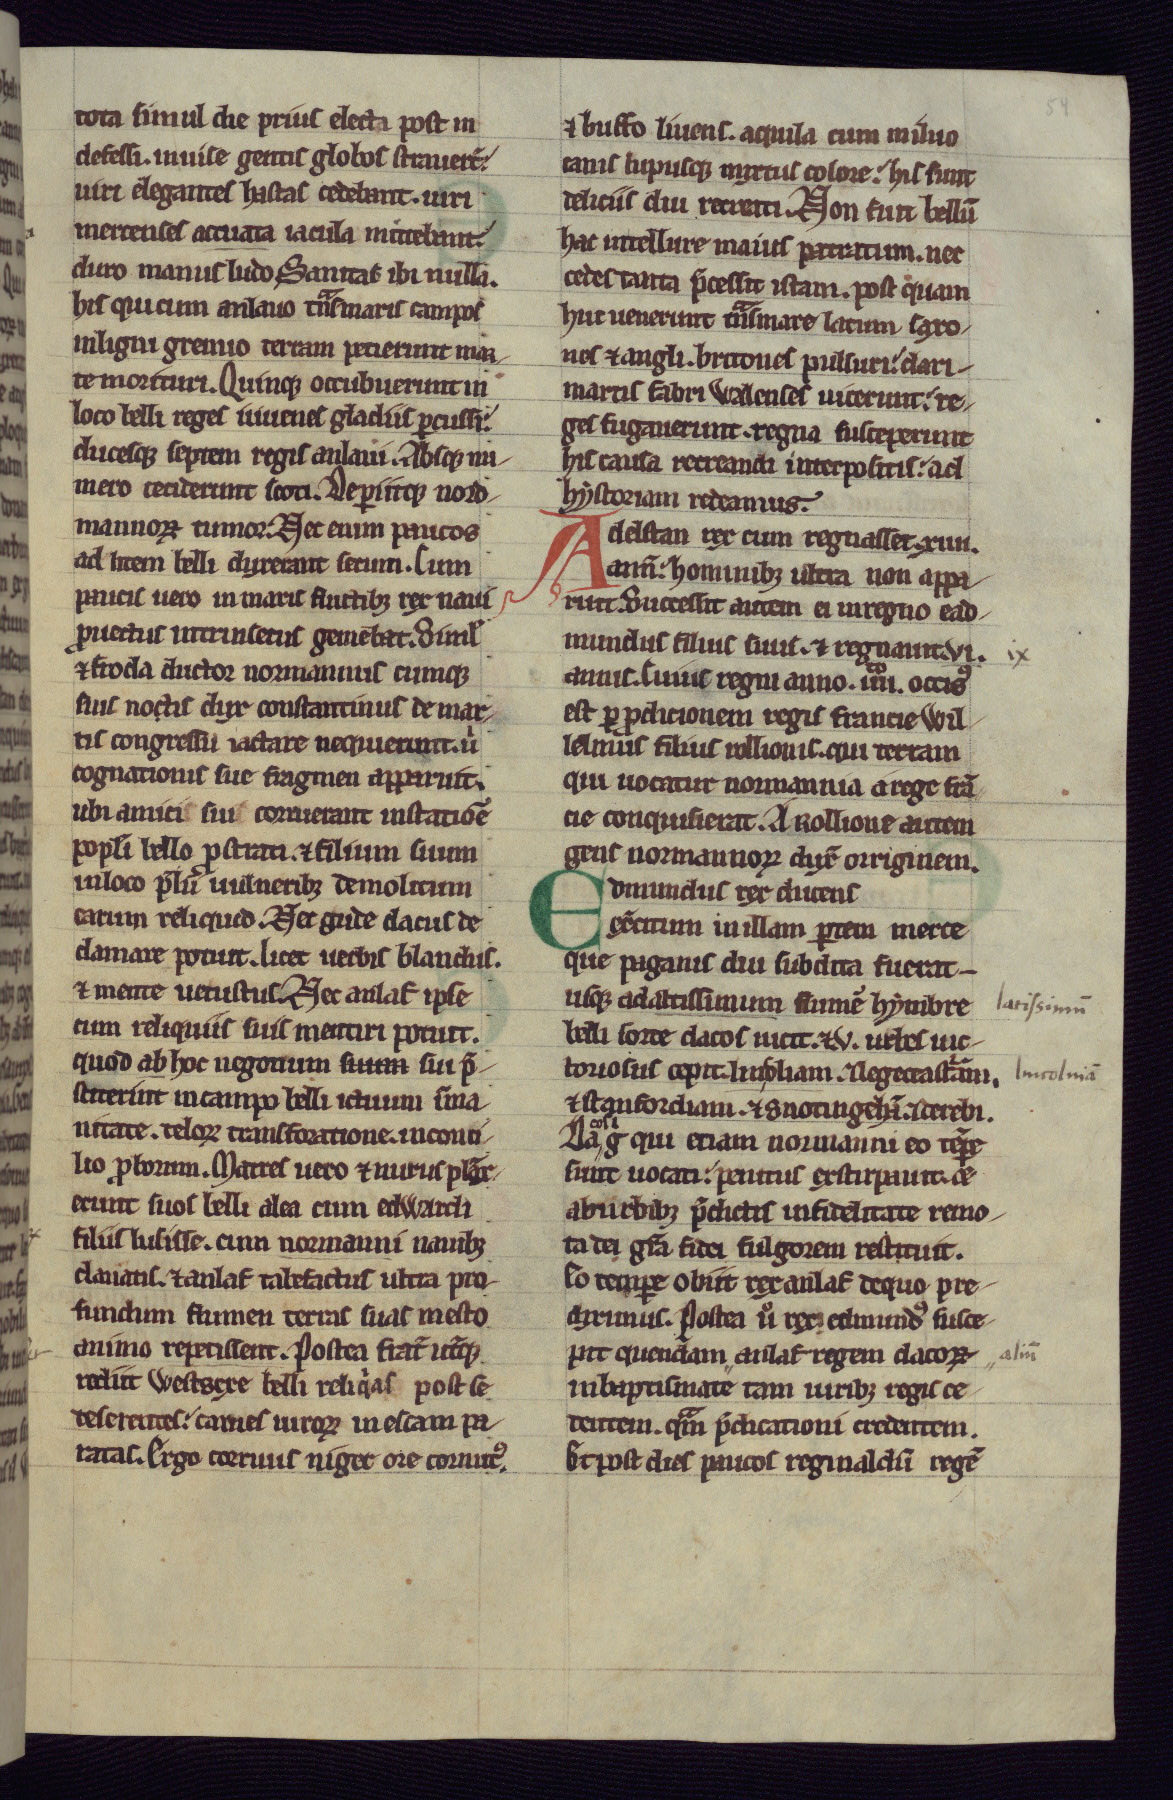 tota simul die prius electa post in
defessi. inuise gentis globos strauert̄:
uiri elegantes hastas cedebant. uiri
mercenses accuata iacula mittebant:
duro manus ludo. Sanitas ibi nulla.
his qui cum anlauo tn̄smaris campos
in ligni gremio terram petierunt mar-
te morituri. Quinqꝫ occubuerunt in
loco belli reges iuuenes gladiis ꝑcussi:
ducesqꝫ septem regis anlaui. Absqꝫ nu-
mero ceciderunt scoti. Deperiitqꝫ nord-
mannoꝝ tumor. Nec enim paucos
ad litem belli duxerant secum. Cum
paucis uero in maris fluctibꝫ rex naui
ꝓuectus intrinsecus gemebat. Simul
⁊ froda ductor normannus cumqꝫ
suis notis dux constantinus de mar-
tis congressu iactare nequierunt. ū
cognationis sue fragmen apparuit.
ubi amici sui corruerant in statiōe
popli bello ꝓstrati. ⁊ filium suum
in loco p̄lii uulneribꝫ demolitum
carum reliquid. Nec gude dacus de
clamare potuit. licet uerbis blandus.
⁊ mente uetustus. Nec anlaf ipse
cum reliquiis suis mentiri potuit.
quod ab hoc negotium suum sui p̄-
stiterint in campo belli ictuum sma
nitate. telorꝫ transforatione. in consi-
lio ꝓborum. Matres uero ⁊ nurus planx-
erunt suos belli alea cum edwardi
filiis lusisse. cum normanni nauibꝫ
clauatis. ⁊ anlaf tabefactus ultra pro-
fundum flumen terras suas mesto
animo repetissent. Postea frater uterqꝫ
rediit westsexe belli reliqas post se
deserentes: carnes uiroꝝ in escam pa-
ratas. Ergo coruus niger ore cornut᷒.
⁊ buffo liuens. aquila cum miluo
canis lupusqꝫ mixtus colore: his sunt
deliciis diu recreati. Non fuit bellū
hac in tellure maius patratum. nec
cedes tanta p̄cessit istam. post quam
huc uenerunt tn̄smare latum saxo-
nes ⁊ angli. britones pulsuri: clari-
martis fabri walenses uicerunt: re-
ges fugauerunt. regna susceperunt
his causa recreandi interpositis: ad
hystoriam redeamus.
Adelstan rex cum regnasset. xiiii.
ann̄: hominibꝫ ultra non appa-
ruit. Successit autem ei in regno ead-
mundus filius suus. ⁊ regnauit. vi. ix
annis. Cuius regni anno. iiii. occis᷒
est ꝑ ꝓdicionem regis francie wil-
lelmus filius rollionis. qui terram
qui uocatur normannia a rege frā
cie conquisierat. A Rollione autem
gens normannoꝝ dux̄ orriginem.
Edmundus rex ducens
exc̄itum in illam ꝑtem merce
que paganis diu subdita fuerat-
usqꝫ ad altissimum flumē hymbre latissimū
belli sorte dacos uicit. ⁊ v. urbes uic-
toriosus cepit. linꝓliam. ⁊ legecastram. lincolniā
⁊ stanfordiam. ⁊ snotingehā. ⁊ derebi.
Dacos igr̄ qui etiam normanni eo tꝑe
sunt uocati: penitus exstirpauit. de
ab urbibꝫ p̄dictis infidelitate remo-
ta dei gr̄a fidei fulgorem restituit.
Eo tempe obiit rex anlaf de quo pre-
diximus. Postea ū rex edmund᷒ susce-
pit quendam anlaf regem dacoꝝ aliū
in baptismate tam uiribꝫ regis ce-
dentem. qm̄ p̄dicationi credentem.
Et post dies paucos reginaldū regē
54